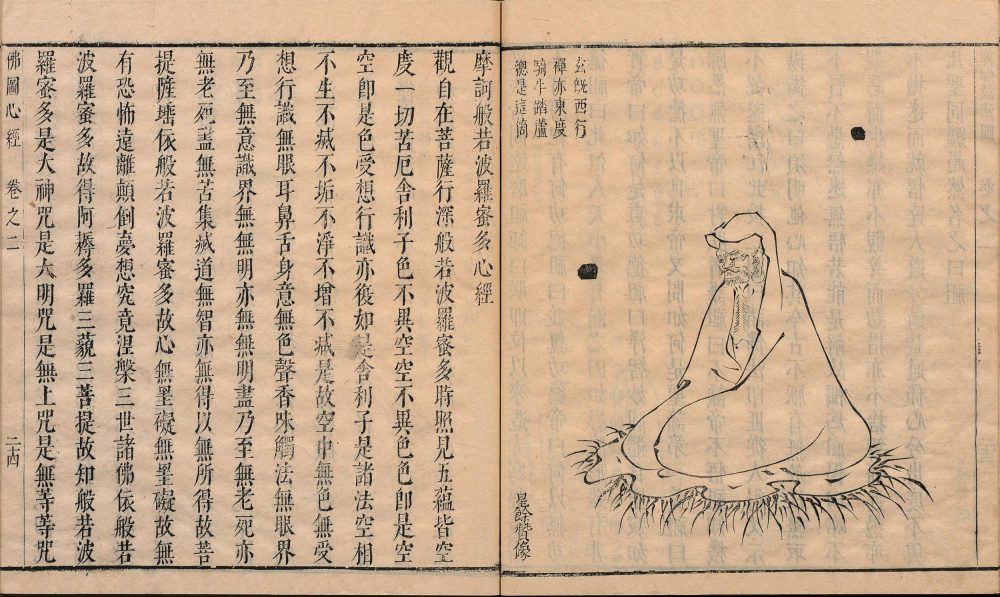 玄旣西行
禪亦東度
騎牛踏蘆
總是這箇
星餘贊像
摩訶般若波羅蜜多心經
觀自在菩薩行深般若波羅蜜多時照見五蘊皆空
度一切苦厄舍利子色不異空空不異色色卽是空
空卽是色受想行識亦復如是舍利子是諸法空相
不生不滅不垢不淨不增不減是故空中無色無受
想行識無眼耳鼻舌身意無色聲香味觸法無眼界
乃至無意識界無無明亦無無明盡乃至無老死亦
無老死盡無苦集滅道無智亦無得以無所得故菩
提薩埵依般若波羅蜜多故心無罣礙無罣礙故無
有恐怖遠離顛倒夢想究竟涅槃三世諸佛依般若
波羅蜜多故得阿耨多羅三藐三菩提故知般若波
羅蜜多是大神咒是大明咒是無上咒是無等等咒
佛圖心經 卷之二 二十四